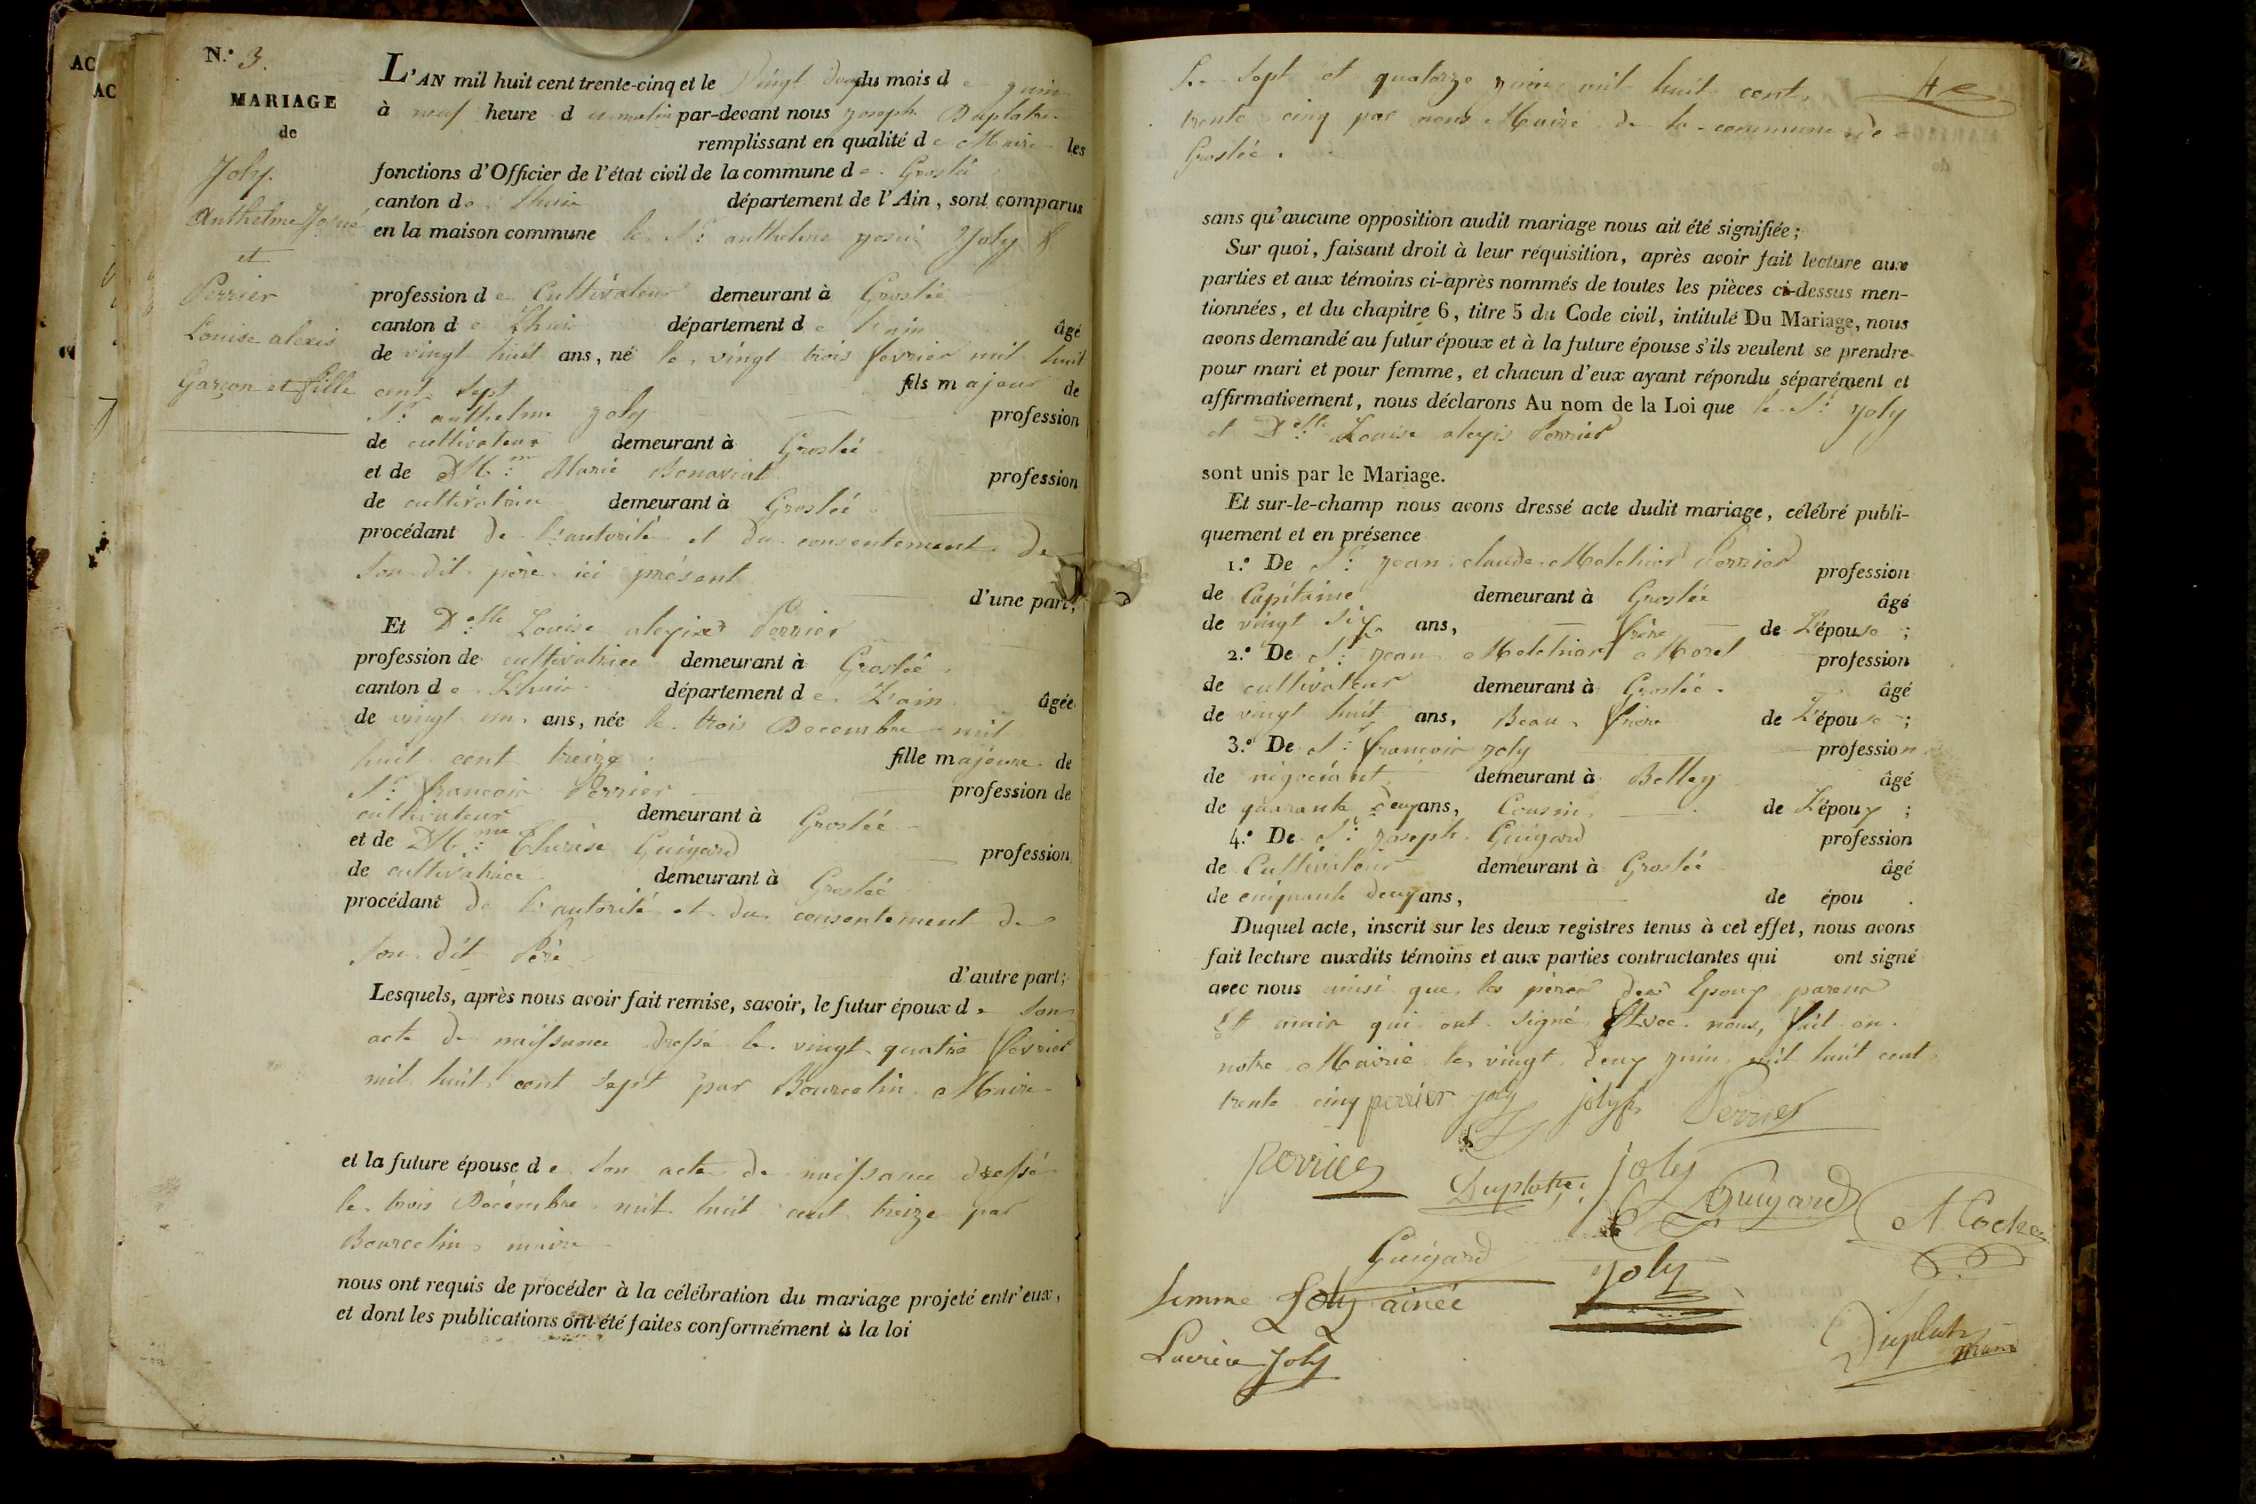 AC
AC
N.° 3.
MARIAGE
de
Joly.
Anthelme Josué
et
Perrier
Louise alexis
Garçon et fille
L'AN mil huit cent trente-cinq et le Vingt deux du mois de juin
à neuf heure du matin par-devant nous joseph Duplatre
remplissant en qualité de Maire les
fonctions d'Officier de l'état civil de la commune de Groslée
canton de Lhuis département de l'Ain, sont comparus
en la maison commune le Sr: anthelme josué Joly
profession de Cultivateur demeurant à Groslée
canton de Lhuis département de âgé
de vingt huit ans, né le vingt trois fevrier mil huit
cent sept fils majeur de
Sr: anthelme joly profession
de cultivateur demeurant à Groslée
et de Marie profession
de cultivatrice demeurant à Groslée
procédant de l'autorité et du consentement de
son dit père ici présent
d'une part;
Et Delle Louise Perrier
profession de cultivatrice demeurant à Groslée
canton de Lhuis département de L'ain âgée
de vingt un ans, née le trois Decembre mil
huit cent treize fille majeure de
Sr: francois Perrier profession de
cultivateur demeurant à Groslée
et de Thérèse Guigard profession
de cultivatrice demeurant à Groslée
procédant de l'autorité et du consentement de
son dit Père
d'autre part;
Lesquels, après nous avoir fait remise, savoir, le futur époux de son
acte de naissance dressé le vingt quatre fevrier
mil huit cent sept par Bourcelin Maire
et la future épouse de son acte de naissance dressé
le trois Décembre mil huit cent treize par
Bourcelin maire
nous ont requis de procéder à la célébration du mariage projeté entr'eux,
et dont les publications ont été faites conformément à la loi
4e
Le sept et quatorze juin mil huit cent
trente cinq par nous Maire de la commune de
Groslée.
sans qu'aucune opposition audit mariage nous ait été signifiée;
Sur quoi, faisant droit à leur réquisition, après avoir fait lecture aux
parties et aux témoins ci-après nommés de toutes les pièces ci-dessus men-
tionnées, et du chapitre 6, titre 5 du Code civil, intitulé Du Mariage, nous
avons demandé au futur époux et à la future épouse s'ils veulent se prendre
pour mari et pour femme, et chacun d'eux ayant répondu séparément et
affirmativement, nous déclarons Au nom de la Loi que le Sr: joly
et Delle Louise alexis Perrier
sont unis par le Mariage.
Et sur-le-champ nous avons dressé acte dudit mariage, célébré publi-
quement et en présence
1.° De Sr: jean claude Melchior Perrier profession
de Capitaine demeurant à Groslée âgé
de vingt six ans, frère de L'épouse;
2.° De Sr: jean Melchior Morel profession
de cultivateur demeurant à Groslée. âgé
de vingt huit ans, Beau frère de L'épouse;
3.° De Sr: francois joly profession
de négociant demeurant à Belley âgé
de quarante deux ans, Cousin de L'époux;
4.° De Sr: joseph Guigard profession
de Cultivateur demeurant à Groslée âgé
de cinquante deux ans, de épou .
Duquel acte, inscrit sur les deux registres tenus à cet effet, nous avons
fait lecture auxdits témoins et aux parties contractantes qui ont signé
avec nous ainsi que les pères des Epoux parens
Et amis qui ont signé Avec nous, fait en
notre Mairie le vingt deux juin mil huit cent
trente cinq perrier joly joly Perrier
perrier Duplatre joly Guigard
Guigard Joly
femme Joly ainée
Joly
Duplatre
maire